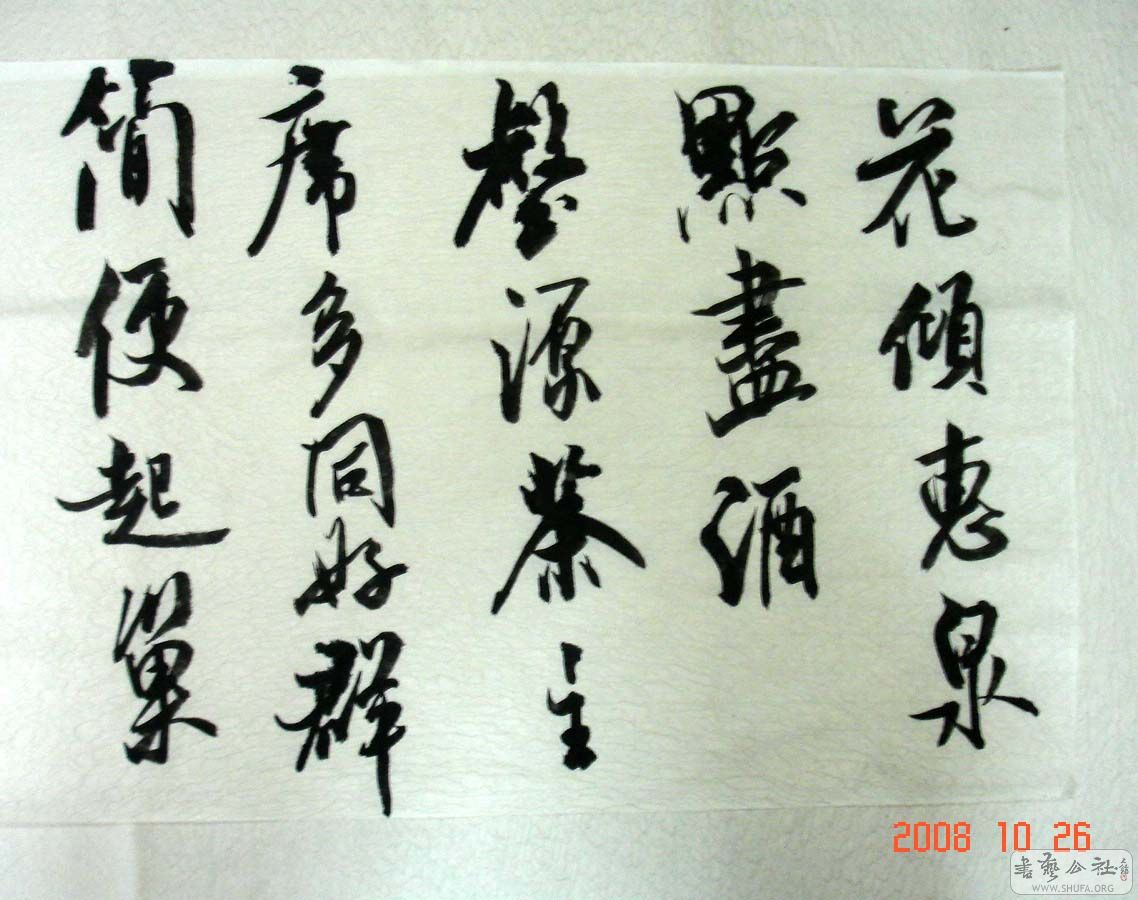 花傾惠泉
點盡酒
壑源茶主
席多同好群
簡便起巢
2008 10 26
書藝公社
WWW.SHUFA.ORG